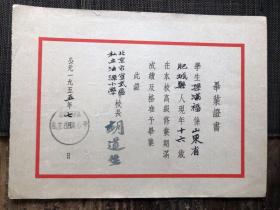 畢業證書
學生孫滿福係山東省
肥城縣人現年十六歲
在本校高級修業期滿
成績及格准予畢業
此證
北京市宣武區
私立法源小學
校長 胡道
公元一九五五年七月 日